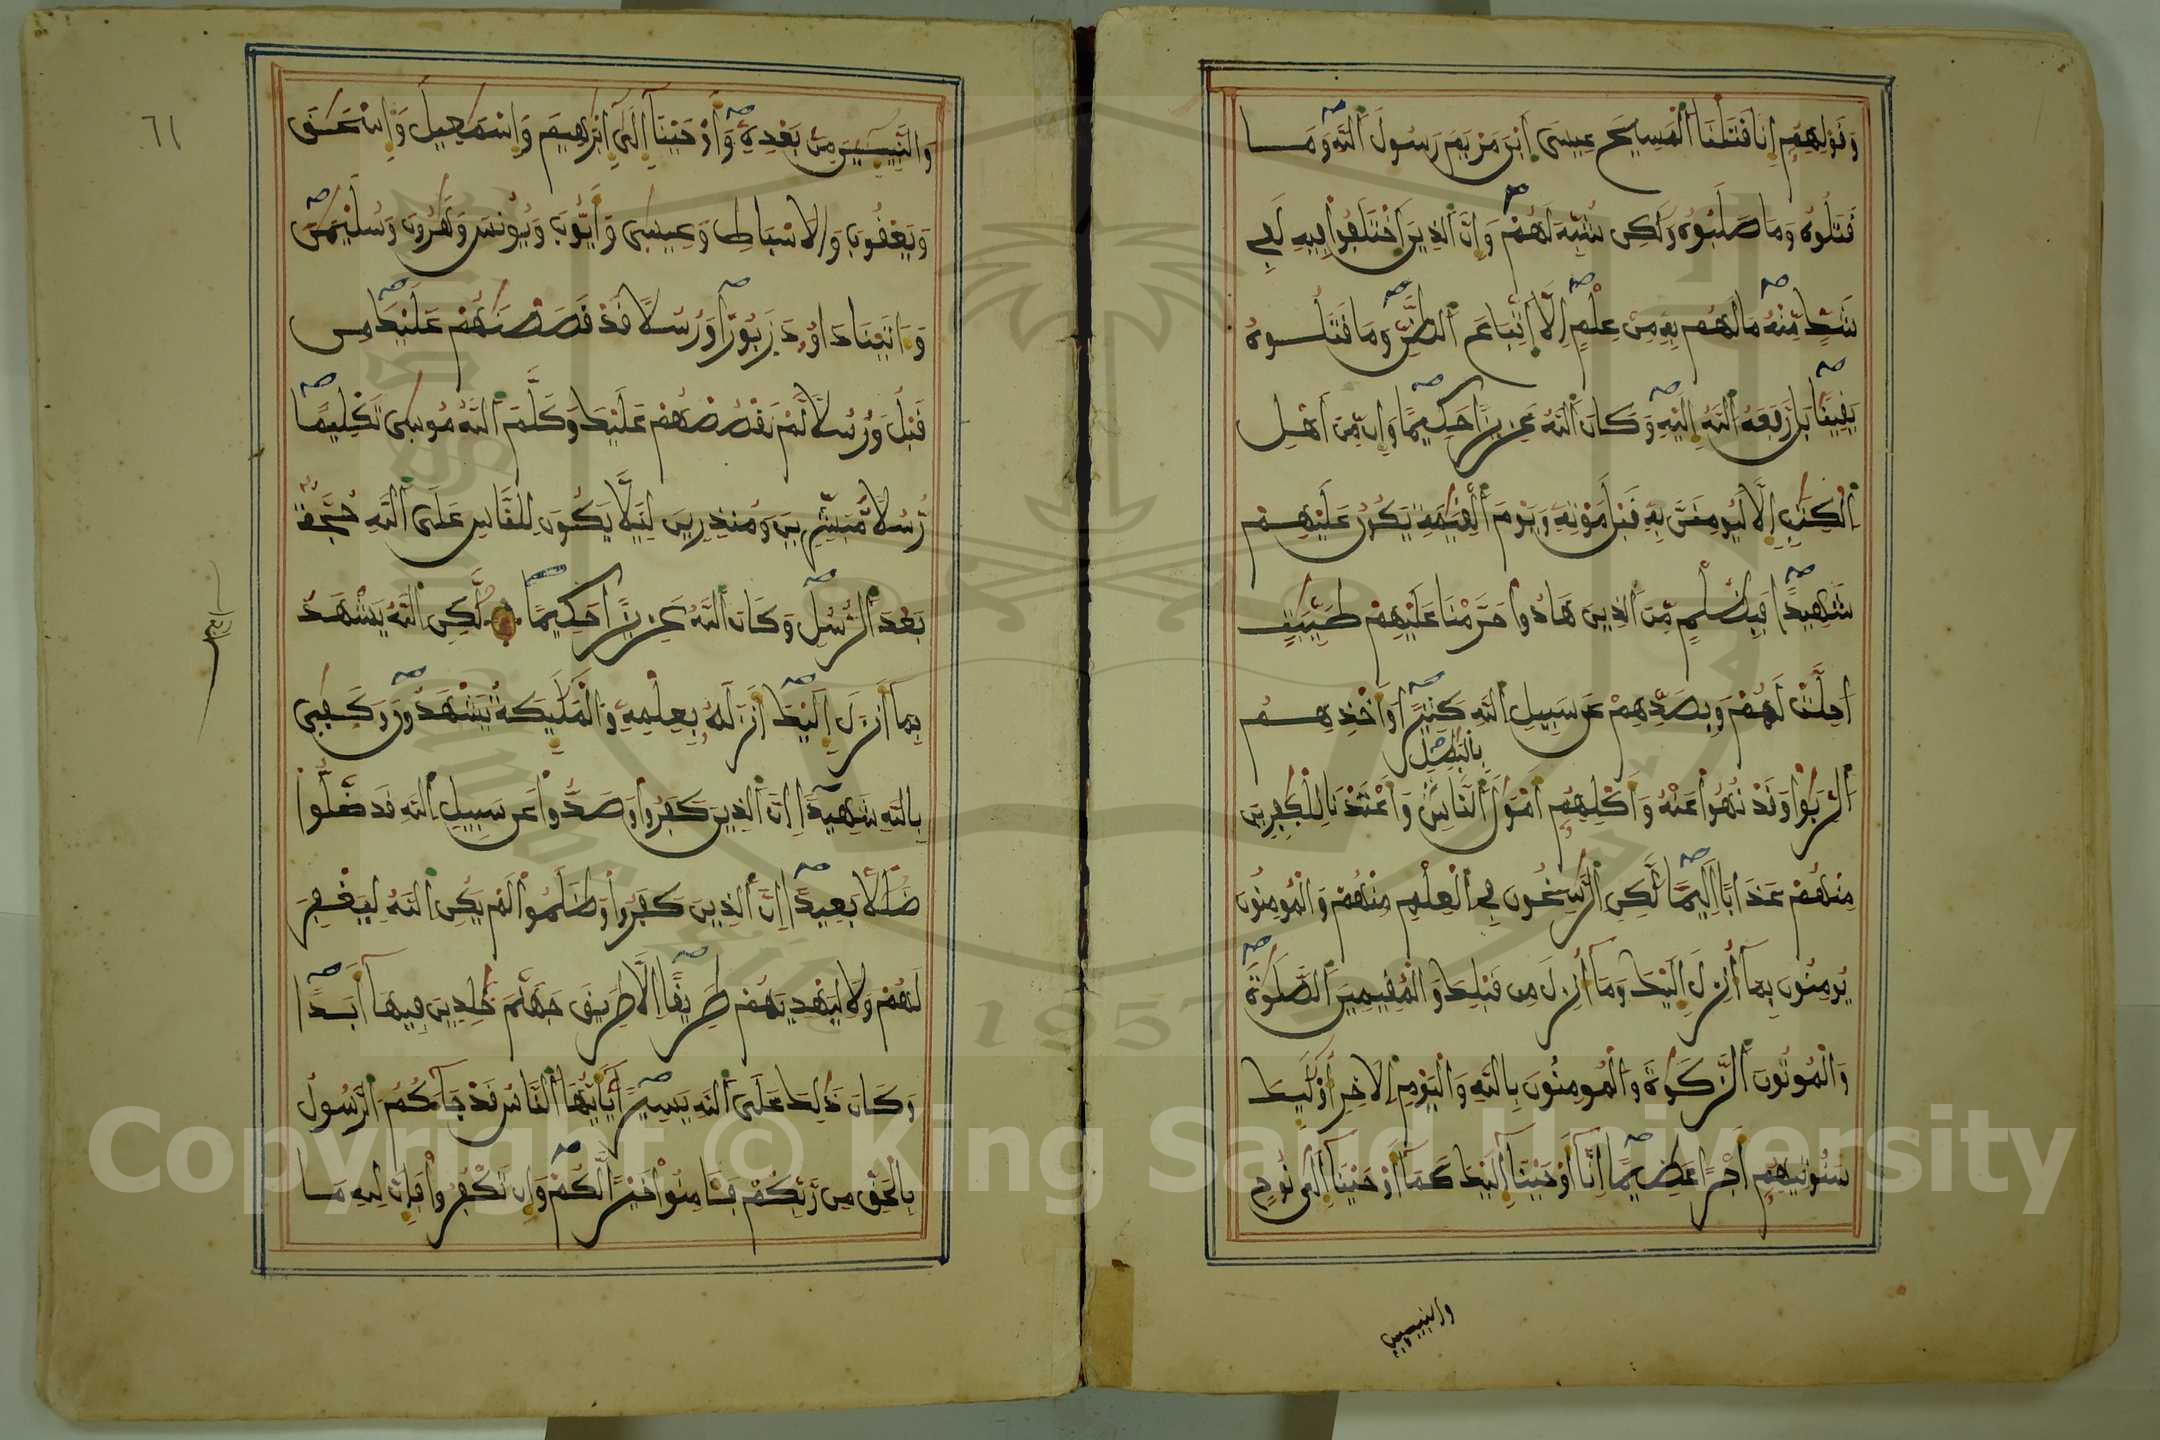 وَقَوْلِهِمُ إِنَّا قَتَلْنَا اَ۬لْمَسِيحَ عِيسَى اَ۪بْنَ مَرْيَمَ رَسُولَ اَ۬للَّهِ وَمَا
قَتَلُوهُ وَمَا صَلَبُوهُ وَلَٰكِن شُبِّهَ لَهُمْ وَإِنَّ اَ۬لذِينَ اَ۪خْتَلَفُواْ فِيهِ لَفِے
شَكٍّ مِّنْهُ مَا لَهُم بِهِۦ مِنْ عِلْمٍ اِلَّا اَ۪تِّبَاعَ اَ۬لظَّنِّ وَمَا قَتَلُوهُ
يَقِيناًۢ بَل رَّفَعَهُ اُ۬للَّهُ إِلَيْهِ وَكَانَ اَ۬للَّهُ عَزِيزاً حَكِيماً وَإِن مِّنَ اَهْلِ
اِ۬لْكِتَٰبِ إِلَّا لَيُومِنَنَّ بِهِۦ قَبْلَ مَوْتِهِۦ وَيَوْمَ اَ۬لْقِيَٰمَةِ يَكُونُ عَلَيْهِمْ
شَهِيداً فَبِظُلْمٍ مِّنَ اَ۬لذِينَ هَادُواْ حَرَّمْنَا عَلَيْهِمْ طَيِّبَٰتٍ
اُحِلَّتْ لَهُمْ وَبِصَدِّهِمْ عَن سَبِيلِ اِ۬للَّهِ كَثِيراً وَأَخْذِهِمُ
اُ۬لرِّبَوٰاْ وَقَدْ نُهُواْ عَنْهُ وَأَكْلِهِمُ أَمْوَٰلَ اَ۬لنَّاسِ بِالْبَٰطِلِ وَأَعْتَدْنَا لِلْكَٰفِرِينَ
مِنْهُمْ عَذَاباً اَلِيماً لَّٰكِنِ اِ۬لرَّٰسِخُونَ فِے اِ۬لْعِلْمِ مِنْهُمْ وَالْمُومِنُونَ
يُومِنُونَ بِمَا أُنزِلَ إِلَيْكَ وَمَا أُنزِلَ مِن قَبْلِكَ وَالْمُقِيمِينَ اَ۬لصَّلَوٰةَ
وَالْمُوتُونَ اَ۬لزَّكَوٰةَ وَالْمُومِنُونَ بِاللَّهِ وَالْيَوْمِ اِ۬لَاخِرِ أُوْلَٰٓئِكَ
سَنُوتِيهِمُ أَجْراً عَظِيماً اِنَّا أَوْحَيْنَا إِلَيْكَ كَمَا أَوْحَيْنَا إِلَىٰ نُوحٍ
والنبيـين
٦١
وَالنَّبِيـِٕينَ مِنۢ بَعْدِهِۦ وَأَوْحَيْنَا إِلَىٰ إِبْرَٰهِيمَ وَإِسْمَٰعِيلَ وَإِسْحَٰقَ
وَيَعْقُوبَ وَالَاسْبَاطِ وَعِيسَىٰ وَأَيُّوبَ وَيُونُسَ وَهَٰرُونَ وَسُلَيْمَٰنَ
وَءَاتَيْنَا دَاوُۥدَ زَبُوراً وَرُسُلاً قَدْ قَصَصْنَٰهُمْ عَلَيْكَ مِن
قَبْلُ وَرُسُلاً لَّمْ نَقْصُصْهُمْ عَلَيْكَ وَكَلَّمَ اَ۬للَّهُ مُوسَىٰ تَكْلِيماً
رُّسُلاً مُّبَشِّرِينَ وَمُنذِرِينَ لِيَلَّا يَكُونَ لِلنَّاسِ عَلَى اَ۬للَّهِ حُجَّةُۢ
بَعْدَ اَ۬لرُّسُلِ وَكَانَ اَ۬للَّهُ عَزِيزاً حَكِيماً لَّٰكِنِ اِ۬للَّهُ يَشْهَدُ
بِمَا أَنزَلَ إِلَيْكَ أَنزَلَهُۥ بِعِلْمِهِۦ وَالْمَلَٰٓئِكَةُ يَشْهَدُونَ وَكَفَىٰ
بِاللَّهِ شَهِيداً اِنَّ اَ۬لذِينَ كَفَرُواْ وَصَدُّواْ عَن سَبِيلِ اِ۬للَّهِ قَد ضَّلُّواْ
ضَلَٰلاً بَعِيداً اِنَّ اَ۬لذِينَ كَفَرُواْ وَظَلَمُواْ لَمْ يَكُنِ اِ۬للَّهُ لِيَغْفِرَ
لَهُمْ وَلَا لِيَهْدِيَهُمْ طَرِيقاً اِلَّا طَرِيقَ جَهَنَّمَ خَٰلِدِينَ فِيهَا أَبَداً
وَكَانَ ذَٰلِكَ عَلَى اَ۬للَّهِ يَسِيراً يَٰأَيُّهَا اَ۬لنَّاسُ قَدْ جَآءَكُمُ اُ۬لرَّسُولُ
بِالْحَقِّ مِن رَّبِّكُمْ فَـَٔامِنُواْ خَيْراً لَّكُمْ وَإِن تَكْفُرُواْ فَإِنَّ لِلهِ مَا
Copyright © King Saud University
1957